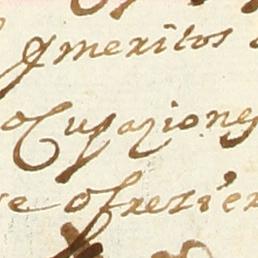 meritos
ocupaziones
se ofrezier